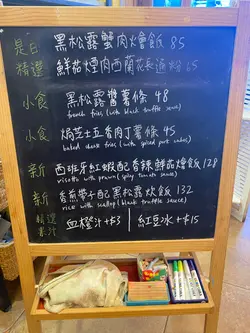 是日 黑松露蟹肉燴飯 85
精選 鮮茄煙肉西蘭花長通粉 65
小食 黑松露醬薯條 48
french fries (with black truffle sauce)
小食 焗芝士五香肉丁薯條 45
baked cheese fries (with spiced pork cubes)
新 西班牙紅蝦配香辣鮮茄燴飯 128
risotto with prawn (spicy tomato sauce)
新 香煎帶子配黑松露炊飯 132
rice with scallop (black truffle sauce)
精選
果汁 血橙汁 +$3 紅豆冰 +$15